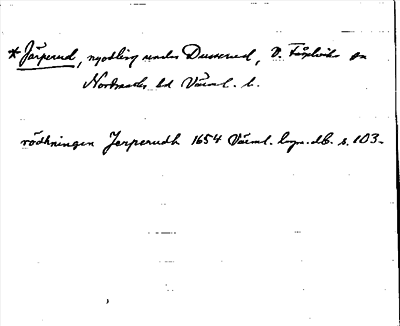 * Järperud, nyodling under Dusserud, V. Fågelvik sn
Nordmarks hd Värml. l.
rödhningen Jerperudh 1654 Värml. lagm.db. s. 103.